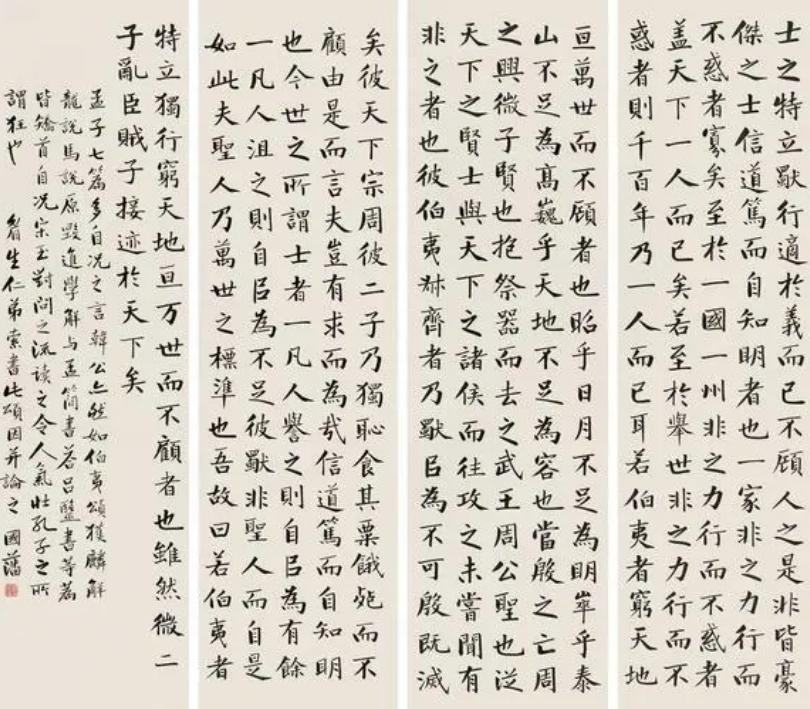 士之特立獨行適於義而已不顧人之是非皆豪
傑之士信道篤而自知明者也一家非之力行而
不惑者寡矣至於一國一州非之力行而不惑者
蓋天下一人而已矣若至於舉世非之力行而不
惑者則千百年乃一人而已耳若伯夷者窮天地
亘萬世而不顧者也昭乎日月不足為明崒乎泰
山不足為高巍乎天地不足為容也當殷之亡周
之興微子賢也抱祭器而去之武王周公聖也從
天下之賢士與天下之諸侯而往攻之未嘗聞有
非之者也彼伯夷叔齊者乃獨以為不可殷既滅
矣彼天下宗周彼二子乃獨恥食其粟餓死而不
顧由是而言夫豈有求而為哉信道篤而自知明
也今世之所謂士者一凡人譽之則自以為有餘
一凡人沮之則自以為不足彼獨非聖人而自是
如此夫聖人乃萬世之標準也吾故曰若伯夷者
特立獨行窮天地亘万世而不顧者也雖然微二
子亂臣賊子接迹於天下矣
孟子七篇多自況之言韓公亦然如伯夷頌獲麟解
龍說馬說原毀進學解与孟簡書答呂毉書等篇
皆矯首自況宋玉對問之流讀之令人氣壯孔子之所
謂狂也 眉生仁弟索書此頌因并論之 國藩